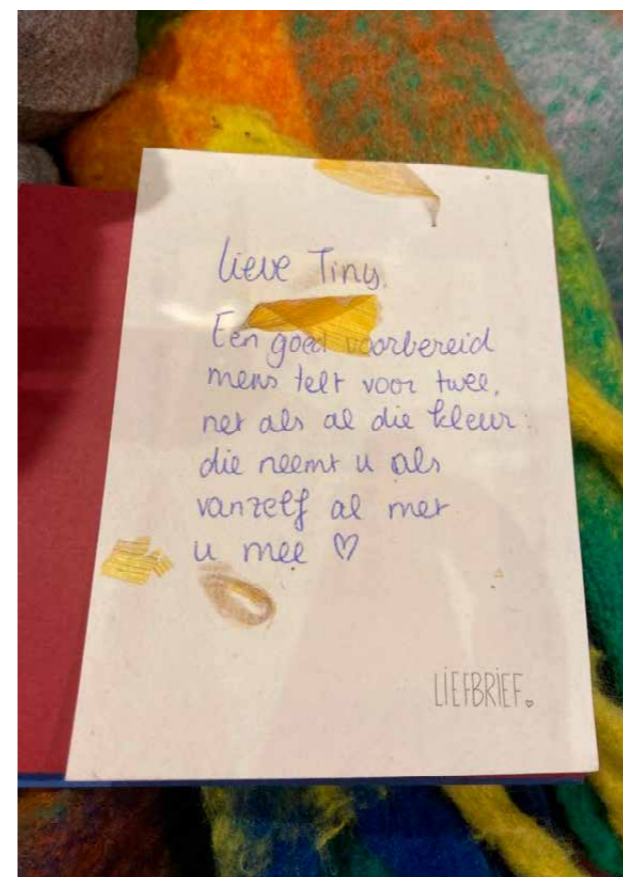 lieve Tiny.
Een goed voorbereid
mens telt voor twee,
net als al die kleur:
die neemt u als
vanzelf al met
u mee ♡
LIEFBRIEF.